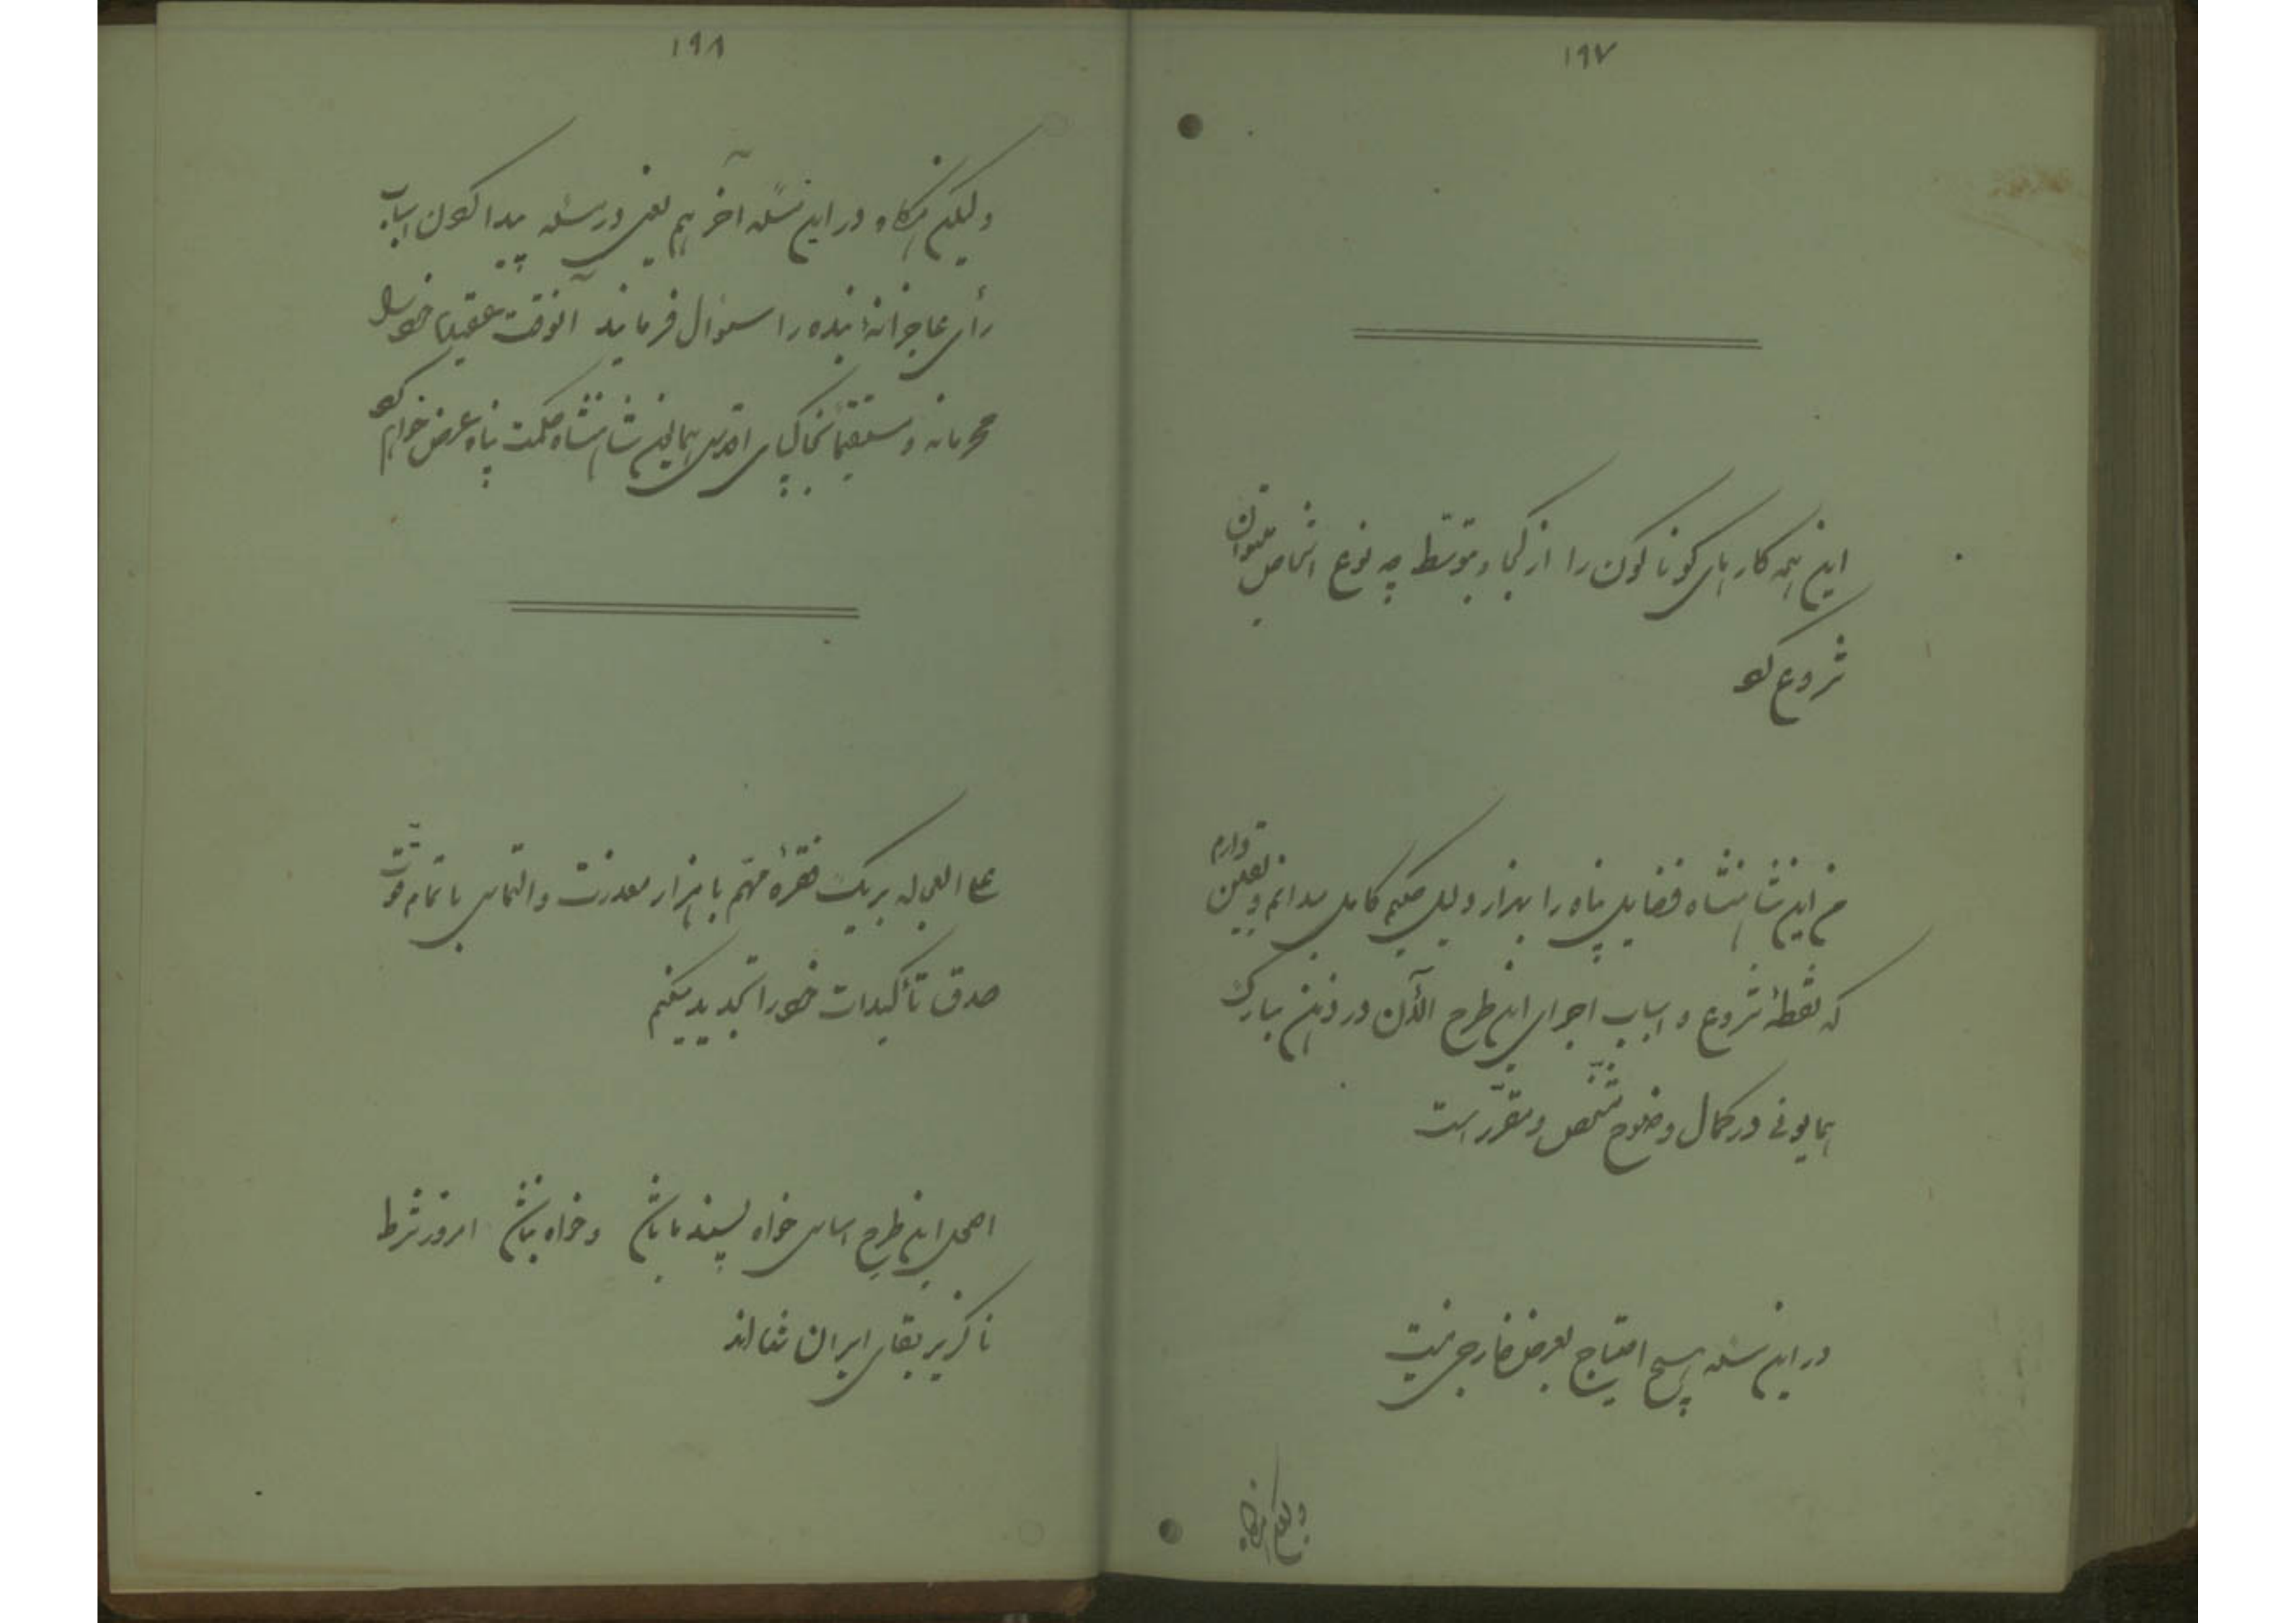 ۱۹۷
این همه کارهای گوناگون را از کجا و بتوسّط چه نوع اشخاص میتوان
شروع کرد
من این شاهنشاه فضایل پناه را بهزار دلیل حکیم کامل میدانم و یقین دارم
که نقطهٔ شروع و اسباب اجرای این طرح الآن در ذهن مبارک
همایونی در کمال وضوح مشخّص و مقرّر است
در این مسئله هیچ احتیاج بعرض خارجی نیست
ولیکن هرگاه
۱۹۸
ولیکن هرگاه در این مسئله آخر هم یعنی در مسئله پیدا کردن اسباب
رأی عاجزانهٔ بنده را سئوال فرمایند آنوقت عقیدهٔ خود را
محرمانه و مستقیماً بخاکپای اقدس همایون شاهنشاه حکمت پناه عرض خواهم کرد
علی العجاله بر یک فقرهٔ مهّم با هزار معذرت و التماس با تمام قوّت
صدق تأکیدات خود را تجدید میکنم
اصول این طرح اساسی خواه پسند ما باشد و خواه نباشد امروز شرط
ناگزیر بقای ایران شده‌اند